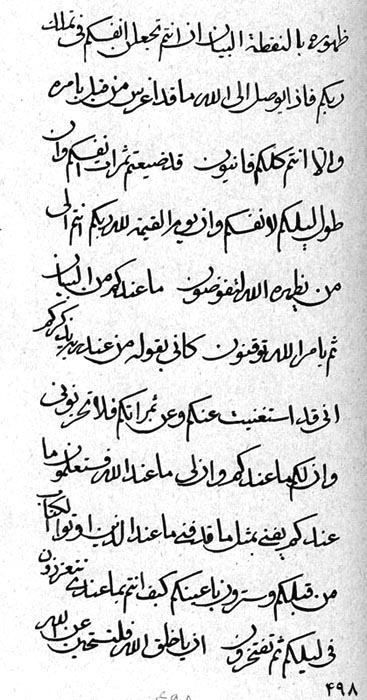 ظهوره بالنقطة البيان ان انتم تجعلن انفسكم في تملك
ربكم فاذا يوصل الى الله ما قد اغرس من قبل بامره
والا انتم كلكم فانيون قد ضيعتم ثمرات انفسكم وان
طول ليلكم لانفسكم وان يوم القيمة لله ربكم انتم الى
من يظهره الله لتفوضون ما عندكم من البيان
ثم بامر الله توقنون كاني بقوله من عند ربه يذكركم
اني قد استغنيت عنكم وعن ثمراتكم فلا تحزنوني
وان لكم ما عندكم وان لي ما عند الله فستعلمون ما
عندكم يفنى بمثل ما قد فنى ما عند الذين اوتوا الكتاب
من قبلكم وسترون باعينكم كيف انتم بما عندكم تتعززون
في ليلكم ثم تفتخرون ان يا خلق الله فلتستحين عن الله
۴۹۸